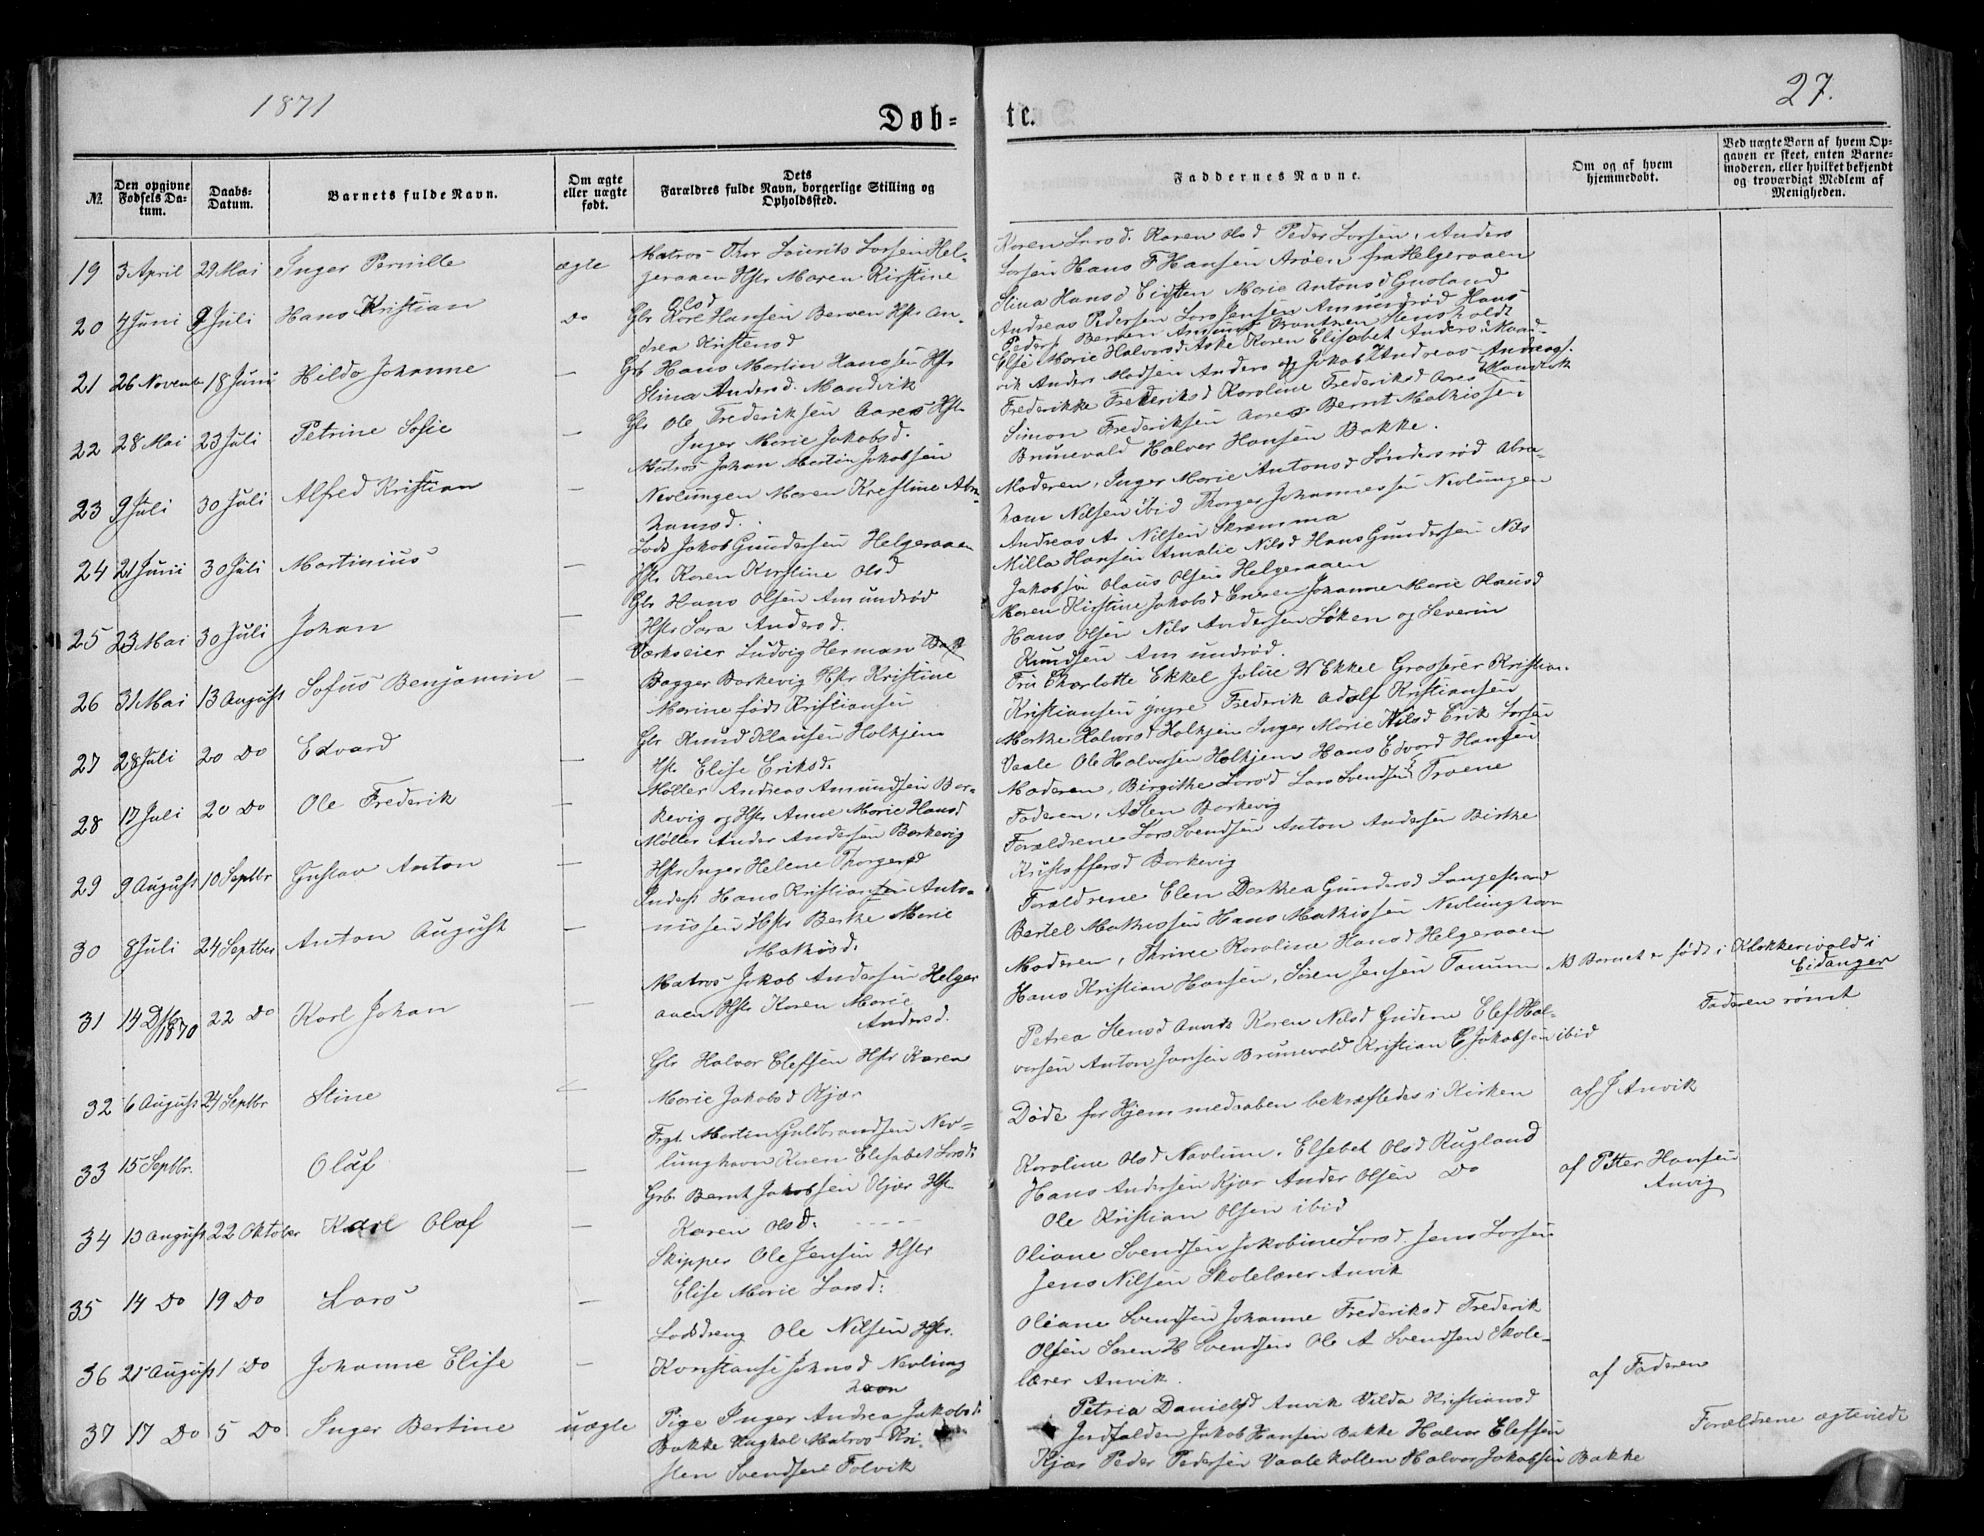 1871
Døb=
te.
27.
№
Den opgivne Fødsels Da-tum.
Daabs-Datum.
Barnets fulde Navn.
Om ægte eller uægte født.
Dets Forældres fulde Navn, borgerlige Stilling og Opholdssted.
Faddernes Navne.
Om og af hvem hjemmedøbt.
Ved uægte Børn af hvem Op-gaven er skeet, enten Barne-moderen, eller hvilket bekjendt og troværdigt Medlem af Menigheden.
19 3 April 29 Mai Inger Pernille ægte
Matros Thor Laurits Larsen Hel-
geraaen Hstr Maren Kirstine
Olsd
Karen Larsd. Karen Olsd Peder Larsen, Anders
Larsen Hans F Hansen Arøen fra Helgeraaen
20 4 Juni 9 Juli Hans Kristian Do
Gbr Kore Hansen Berven Hstr An-
drea Kristensd
Stina Hansd Eidsten Marie Antonsd Gusland
Andreas Pedersen Lars Jensen Amundrød Hans
Peders Berven Amund Hensholdt
21 26 Novemb 18 Juni Hilda Johanne —
Gb Hans Martin Hanssen Hstr
Stina Andersd. Mandvik
Else Marie Halvorsd Aske Karen Elisabet Anders. Mand-
vik Anders Madsen Anders og Jakob Andreas Andreass.
Mandvik
22 28 Mai 23 Juli Petrine Sofie —
Gb Ole Frederiksen Aares Hstr
Inger Marie Jakobsd.
Frederikke Frederiksd Karoline Frederiksd Aares
Simon Frederiksen Aares Bernt Mathissen
Brunevald Halvor Hansen Bakke.
23 9 Juli 30 Juli Alfred Kristian —
Matros Johan Martin Jakobsen
Nevlungen Maren Krestine Abra-
hamsd.
Moderen, Inger Marie Antonsd Søndersrød Abra-
ham Nilsen ibid Thorger Johannessen Nevlungen
Andreas A. Nilsen Skræmma
24 21 Juni 30 Juli Martinius —
Lods Jakob Gundersen Helgeraaen
Hstr Karen Kirstine Olsd
Milla Hansen Amalie Nilsd Hans Gundersen Nils
Jakobsen Olaus Olsen Helgeraaen
25 23 Mai 30 Juli Johan —
Gbr Hans Olsen Amundrød
Hstr Sara Andersd.
Maren Kirstine Jakobsd Johanne Marie Olausd
Hans Olsen Nils Andersen Løken og Severin
Knudsen Amundrød.
26 31 Mai 13 August Sofus Benjamin —
Værkseier Ludvig Herman
Bagger Barkevig Hstr Kristine
Marine født Kristiansen
Fru Charlotte Ekkel Julie W Ekkel Grosserer Kristian
Kristiansen yngre Frederik Adolf Kristiansen
27 28 Juli 20 Do Edvard
Gbr Knud Klausen Holkjem
Hstr Elise Eriksd.
Marthe Halvorsd Holkjen Inger Marie Nilsd Erik Larsen
Vaale Ole Halvorsen Holkjem Hans Edvard Hansen
28 17 Juli 20 Do Ole Frederik —
Møller Andreas Amundsen Bar-
kevig og Hstr Anne Marie Hansd
Moderen, Birgithe Larsd Lars Svendsen Troene
Faderen, Aslen Barkevig
29 9 August 10 Septbr Gustav Anton —
Møller Ander Andersen Barkevig
Hstr Inger Helene Thorgersd
Forældrene Lars Svendsen Anton Andersen Birthe
Kristoffersd Barkevig
30 8 Juli 24 Septber Anton August —
Inderst Hans Kristian Anto-
nissen Hstr Berthe Marie
Mathisd.
Forældrene Elen Dorthea Gundersd Langestrand
Bertel Mathissen Hans Mathissen Nevlunghavn
31 14 Dbr 1870 22 Do Karl Johan
Matros Jakob Andersen Helger
aaen Hstr Karen Marie
Andersd.
Moderen, Thrine Karoline Hansd Helgeraaen
Hans Kristian Hansen, Søren Jensen Tanum
NB Barnet er født i Klokkerivald i
Eidanger
Faderen rømt
32 6 August 24 Septbr Stine
Gbr Halvor Elefsen Hstr Karen
Marie Jakobsd Kjær
Petrea Hensd Anvik Karen Nilsd Gudem Elef Hal-
vorsen Anton Jansen Brunevald Kristian E Jakobsen ibid
33 15 Septbr. Oláf —
Frgt. Martin Guldbrandsen Nev=
lunghavn Karen Elisabet Larsd:
Døde før Hjemmedaaben bekræftedes i Kirken
af J Anvik
34 13 August 22 Oktober Karl Olaf —
Grb. Bernt Jakobsen Kjær Hst.
Karen Olsd.
Karoline Olsd Navlum. Elsebet Olsd Rugland
Hans Andersen Kjær Ander Olsen Do
Ole Kristian Olsen ibid
af Petter Hansen
Anvig
35 14 Do 19 Do Lars —
Skipper Ole Jensen Hstr
Elise Marie Larsd:
Oliane Svendsen Jakobine Larsd. Jens Larsen
Jens Nilsen Skolelærer Anvik
36 21 August 1 Do Johanne Elise —
Lodsdreng Ole Nilsen Hstr.
Konstanse Johnsd Nevlung
havn
Oliane Svendsen Johanne Frederiksd Frederik
Olsen Søren H Svendsen Ole A Svendsen Skole-
lærer Anvik.
af Faderen
37 17 Do 5 Do Inger Bertine uægte
Pige Inger Andrea Jakobsd:
Bakke Ungkal Matros Kri-
sten Svendsen Folvik
Petria Danielsd Anvik Vilda Kristiansd
Jordfalden Jakob Hansen Bakke Halvor Elefsen
Kjær Peder Pedersen Vaalekollen Halvor Jakobsen Bakke
Forældrene ægteviede